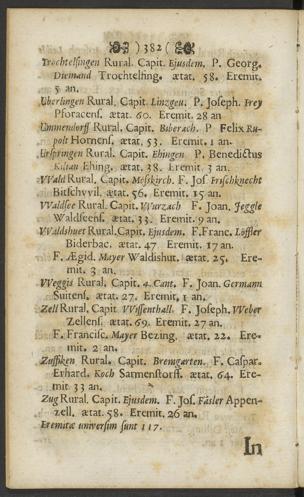 ) 382 (
Trochtelfingen Rural. Capit. Ejusdem. P. Georg.
Diemand Trochtelfing. ætat. 58. Eremit.
5 an.
Uberlingen Rural. Capit. Linzgeu. P. Joseph. Frey
Pforacens. ætat. 60. Eremit. 28 an
Ummendorff Rural. Capit. Biberach. P Felix Ru-
polt Hornens, ætat, 53. Eremit. 1 an.
Urspringen Rural. Capit. Ehingen P. Benedictus
Kilian Ehing. ætat. 38. Eremit. 3 an.
Wald Rural. Capit. Messkirch. F. Jos Frischknecht
Bitschvvil. ætat. 56. Eremit. 15 an.
Waldsee Rural. Capit. Wurzach F. Joan. Jeggle
Waldseens. ætat. 33. Eremit. 9 an.
Waldshuet Rural. Capit. Ejusdem. F. Franc. Löffler
Biderbac. ætat. 47 Eremit. 17 an.
F. Ægid. Mayer Waldishut. ætat. 25. Ere-
mit. 3 an.
Weggis Rural. Capit. 4. Cant. F. Joan. Germann
Suitens. ætat. 27. Eremit, 1 an.
Zell Rural. Capit Wisenthall. F. Joseph. Weber
Zellens. ætat. 69. Eremit. 27 an.
F. Francisc. Mayer Bezing. ætat. 22. Ere-
mit. 2 an.
Zuffiken Rural. Capit. Bremgarten. F. Caspar.
Erhard. Koch Sarmenstorff. ætat. 64. Ere-
mit 33 an.
Zug Rural. Capit. Ejusdem. F. Jos. Fäsler Appen-
zell. ætat. 58. Eremit. 26 an.
Eremitæ universim sunt 117.
In